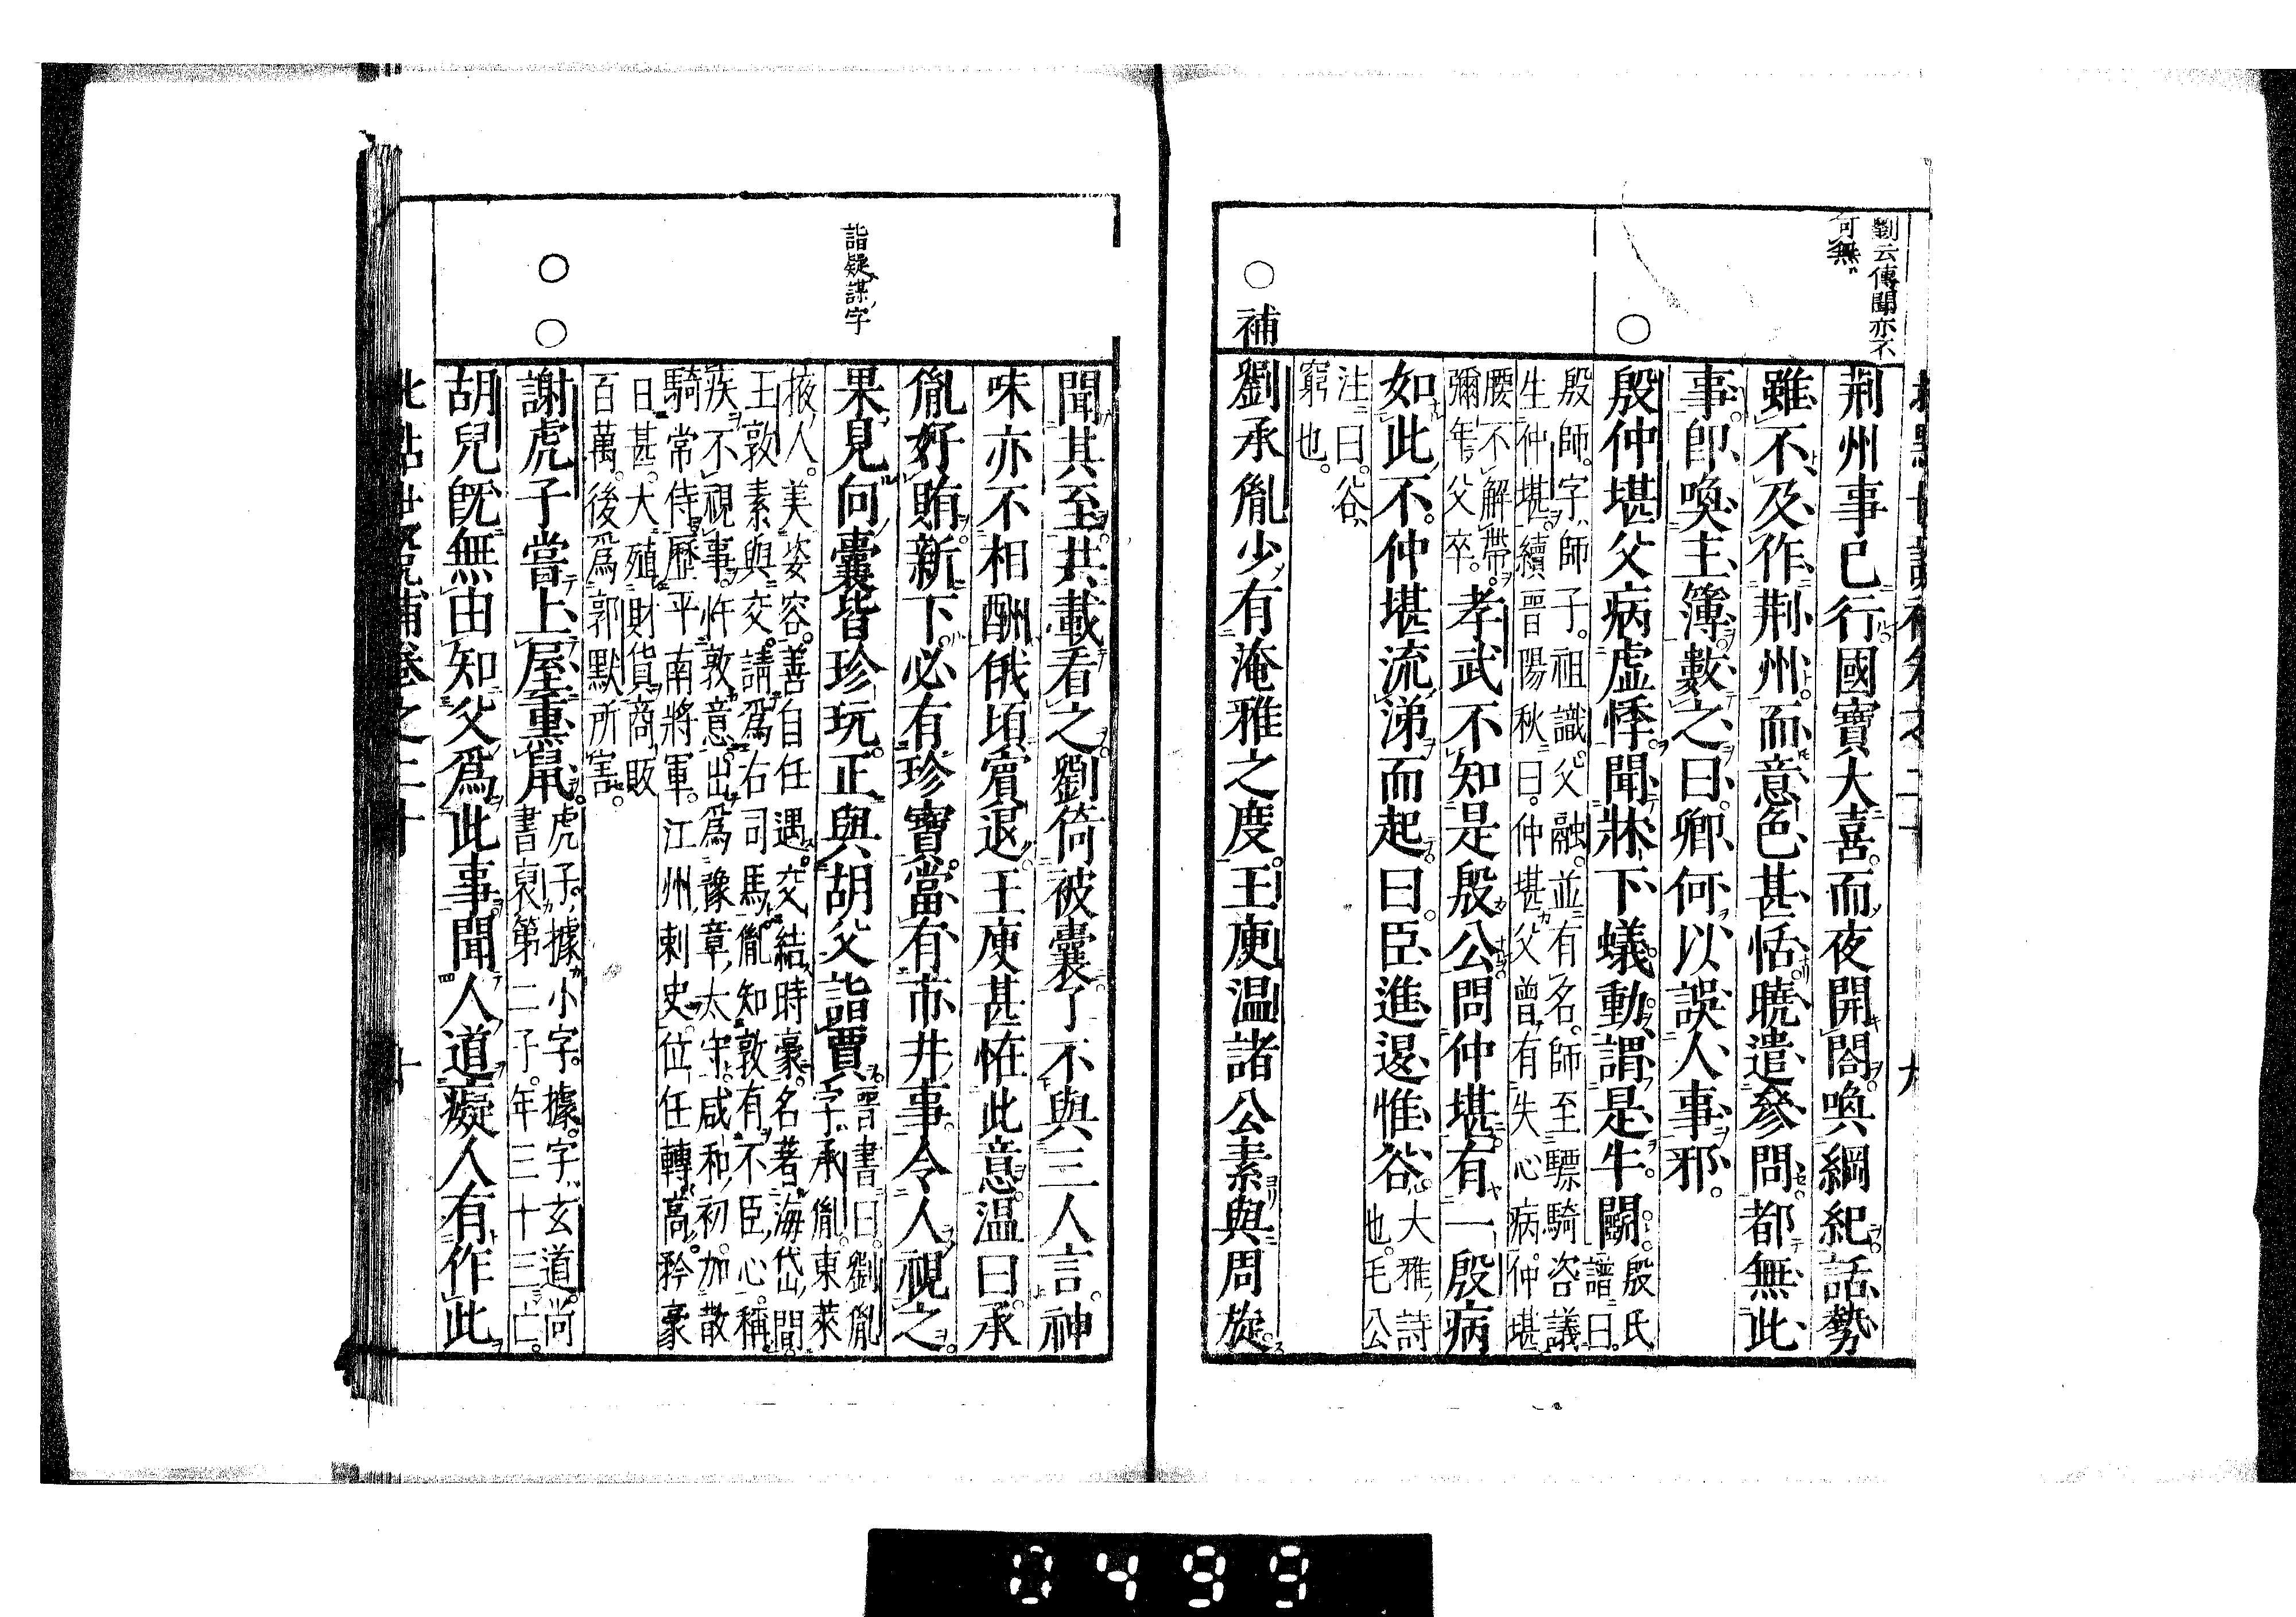 劉云傳聞亦不
可無
荆州事已行國寶大喜而夜開閤喚綱紀話勢
雖不及作荆州而意色甚恬曉遣參問都無此
事卽喚主簿數之曰卿何以誤人事邪
○
殷仲堪父病虛悸聞牀下蟻動謂是牛鬭
殷氏
譜曰
殷師字師子祖識父融並有名師至驃騎咨議
生仲堪續晉陽秋曰仲堪父曾有失心病仲堪
腰不解帶
彌年父卒
孝武不知是殷公問仲堪有一殷病
如此不仲堪流涕而起曰臣進退惟谷
大雅詩
也毛公
注曰谷
窮也
○補
劉承胤少有淹雅之度王庾温諸公素與周旋
聞其至共載看之劉倚被囊了不與三人言神
味亦不相酬俄頃賓退王庾甚怪此意温曰承
胤好賄新下必有珍寶當有市井事令人視之
詣疑謀字
果見向囊皆珍玩正與胡父詣賈
晉書曰劉胤
字承胤東萊
掖人美姿容善自任遇交結時豪名著海岱間
王敦素與交請爲右司馬胤知敦有不臣心稱
疾不視事忤敦意出爲豫章太守咸和初加散
騎常侍歷平南將軍江州刺史位任轉高矜豪
日甚大殖財貨商販
百萬後爲郭默所害
○
○
謝虎子嘗上屋熏鼠
虎子據小字據字玄道尚
書裒第二子年三十三亡
胡兒旣無由知父爲此事聞人道癡人有作此